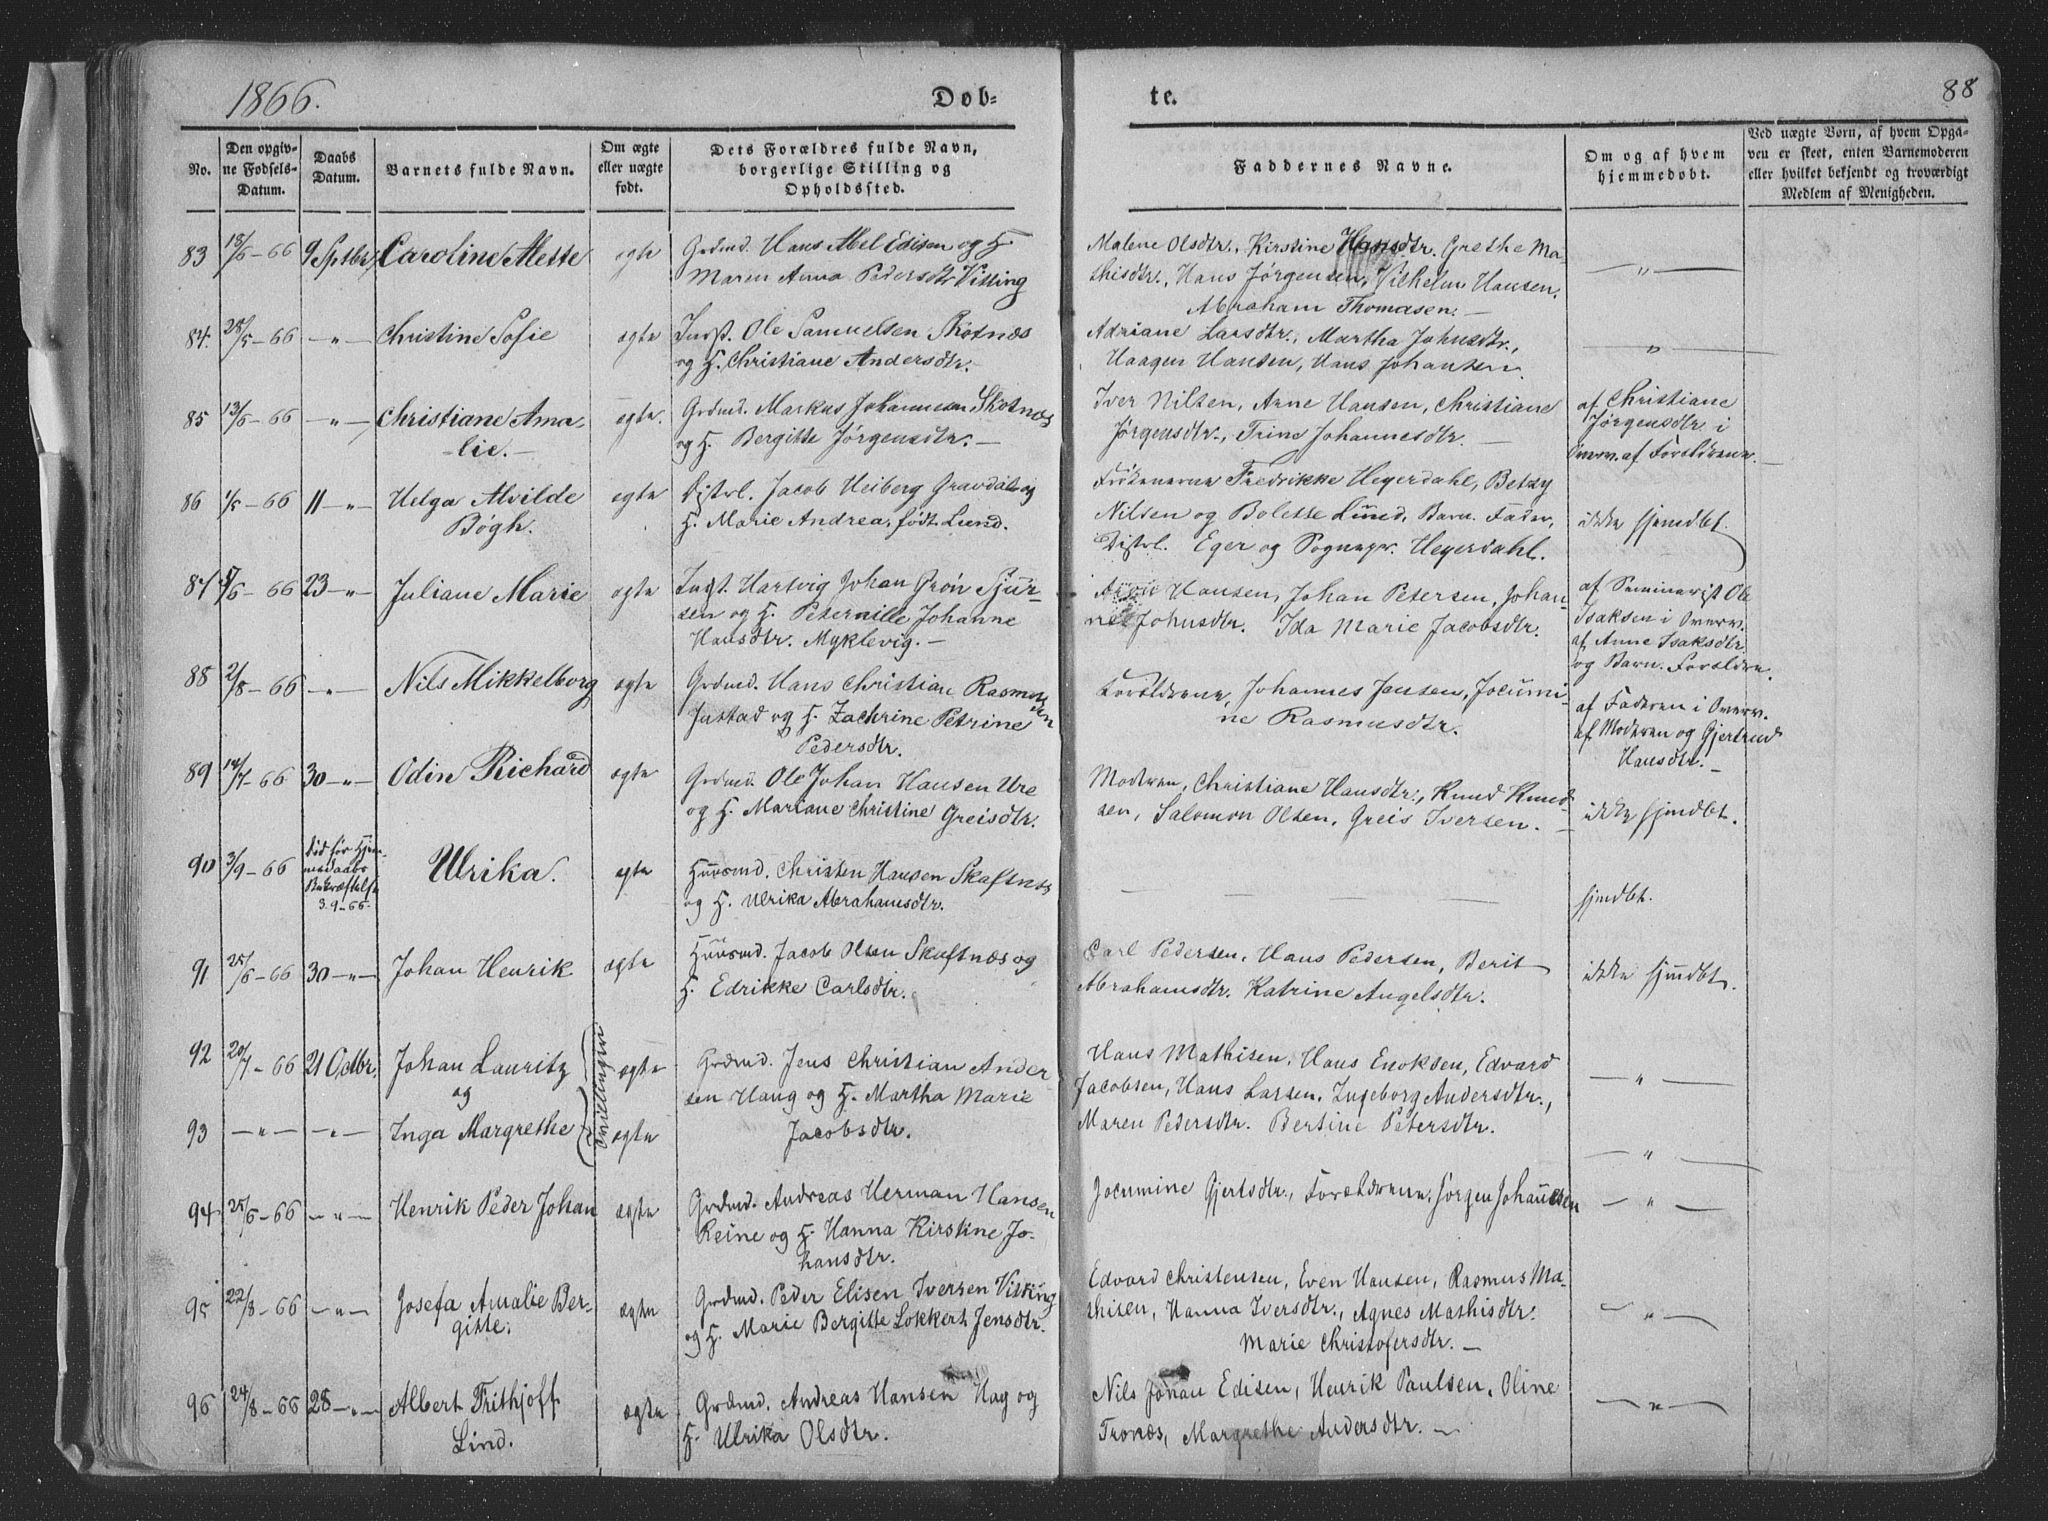 1866.
Døb-
te.
88
No.
Den opgiv-
ne Fødsels-
Datum.
Daabs
Datum.
Barnets fulde Navn.
Om ægte
eller uægte
født.
Dets Forældres fulde Navn,
borgerlige Stilling og
Opholdssted.
Faddernes Navne.
Om og af hvem
hjemmedøbt.
Ved uægte Børn, af hvem Opga-
ven er skeet, enten Barnemoderen
eller hvilket bekjendt og troværdigt
Medlem af Menigheden.
83 18/6 - 66 9 Sptbr Caroline Mette ægte
Grdmd. Hans Abel Edisen og H.
Maren Anna Pedersdtr Vitting
Malene Olsdtr., Kirstine Hansdtr. Grethe Ma-
thisdtr., Hans Jørgensen, Vilhelm Hansen.
Abraham Thomasen. -
- " -
84. 28/5 - 66 - " - Christine Sofie ægte
Indst. Ole Samuelsen Skotnæs
og H. Christiane Andersdtr. -
Adriane Larsdtr., Martha Johnsdtr.,
Haagen Hansen, Hans Johansen.
- " -
85 13/6 - 66 - " - Christiane Ama-
lie. - ægte.
Grdmd. Markus Johannesen Skotnæs
og H. Bergitte Jørgensdtr. -
Iver Nilsen, Arne Hansen, Christiane
Jørgensdtr., Trine Johannesdtr. -
af Christiane
Jørgensdtr. i
Overv. af Forældrene. -
86 1/5 - 66 11 - " - Helga Alvilde
Bøgh. ægte
Distrl. Jacob Heiberg Gravdal og
H. Marie Andrea, født Lund.
Frøkenerne Fredrikke Heyerdahl, Betzy
Nilsen og Bolette Lund, Barn. Fader,
Distrl. Eger og Sognepr. Heyerdahl.
ikke hjemdbt.
87 /6 - 66 23 - " - Juliane Marie ægte
Indst. Hartvig Johan Grøn Sjur-
sen og H. Peternille Johanne
Hansdtr. Myklevig. -
Hansen, Johan Petersen, Johan-
ne Johnsdtr. Ida Marie Jacobsdtr.
af Seminarist Ole
Isaksen i Overv.
af Anne Isaksdtr
og Barn. Forældre.
88 2/8 - 66 - " - Nils Mikkelborg ægte
Grdmd. Hans Christian Rasmussen
Justad og H. Zachrine Petrine
Pedersdtr.
Forældrene, Johannes Jensen, Jocumi-
ne Rasmusdtr.
af Faderen i Overv.
af Moderen og Gjertrud
Hansdtr. -
89 14/7 - 66 30 - " - Odin Richard ægte
Grdmd. Ole Johan Hansen Ure
og H. Mariane Christine Greisdtr.
Moderen, Christiane Hansdtr., Knud Knud-
sen, Salomon Olsen, Greis Iversen. -
ikke hjemdbt.
90 3/9 - 66 død før Hjem-
medaabs
Bekræftelse
3.9-66. Ulrika. ægte
Huusmd. Christen Hansen Skaftnæs
og H. Ulrika Abrahamsdtr.
hjemdbt.
91 25/6 - 66 30 - " - Johan Henrik ægte
Huusmd. Jacob Olsen Skaftnæs og
H. Edrikke Carlsdtr.
Carl Pedersen, Hans Pedersen, Berit
Abrahamsdtr. Katrine Angelsdtr.
ikke hjemdbt.
92 20/7 - 66 21 Octbr. Johan Lauritz ægte
og
Tvillinger.
Grdmd. Jens Christian Ander-
sen Haug og H. Martha Marie
Jacobsdtr.
Hans Mathisen, Hans Enoksen, Edvard
Jacobsen, Hans Larsen, Ingeborg Andersdtr.,
Maren Pedersdtr. Bertine Petersdtr.
- " -
93 - " - - " - Inga Margrethe ægte
- " -
94 25/6 - 66 - " - Henrik Peder Johan ægte
Grdmd. Andreas Herman Hansen
Reine og H. Hanna Kirstine Jo-
hansdtr.
Jocumine Gjertsdtr., Forældrene, Jørgen Johannesen
- " -
95 22/8 - 66 - " - Josefa Amalie Ber-
gitte. ægte
Grdmd. Peder Elisen Iversen Vitting
og H. Marie Bergitte Lokkert Jensdtr.
Edvard Christensen, Even Hansen, Rasmus Ma-
thisen, Hanna Iversdtr., Agnes Mathisdtr.
Marie Christofersdtr. -
- " -
96 24/8 - 66 28 - " - Albert Frithjoff
Lind. ægte
Grdmd. Andreas Hansen Hag og
H. Ulrika Olsdtr.
Nils Johan Edisen, Henrik Paulsen, Oline
Tronæs, Margrethe Andersdtr. -
- " -